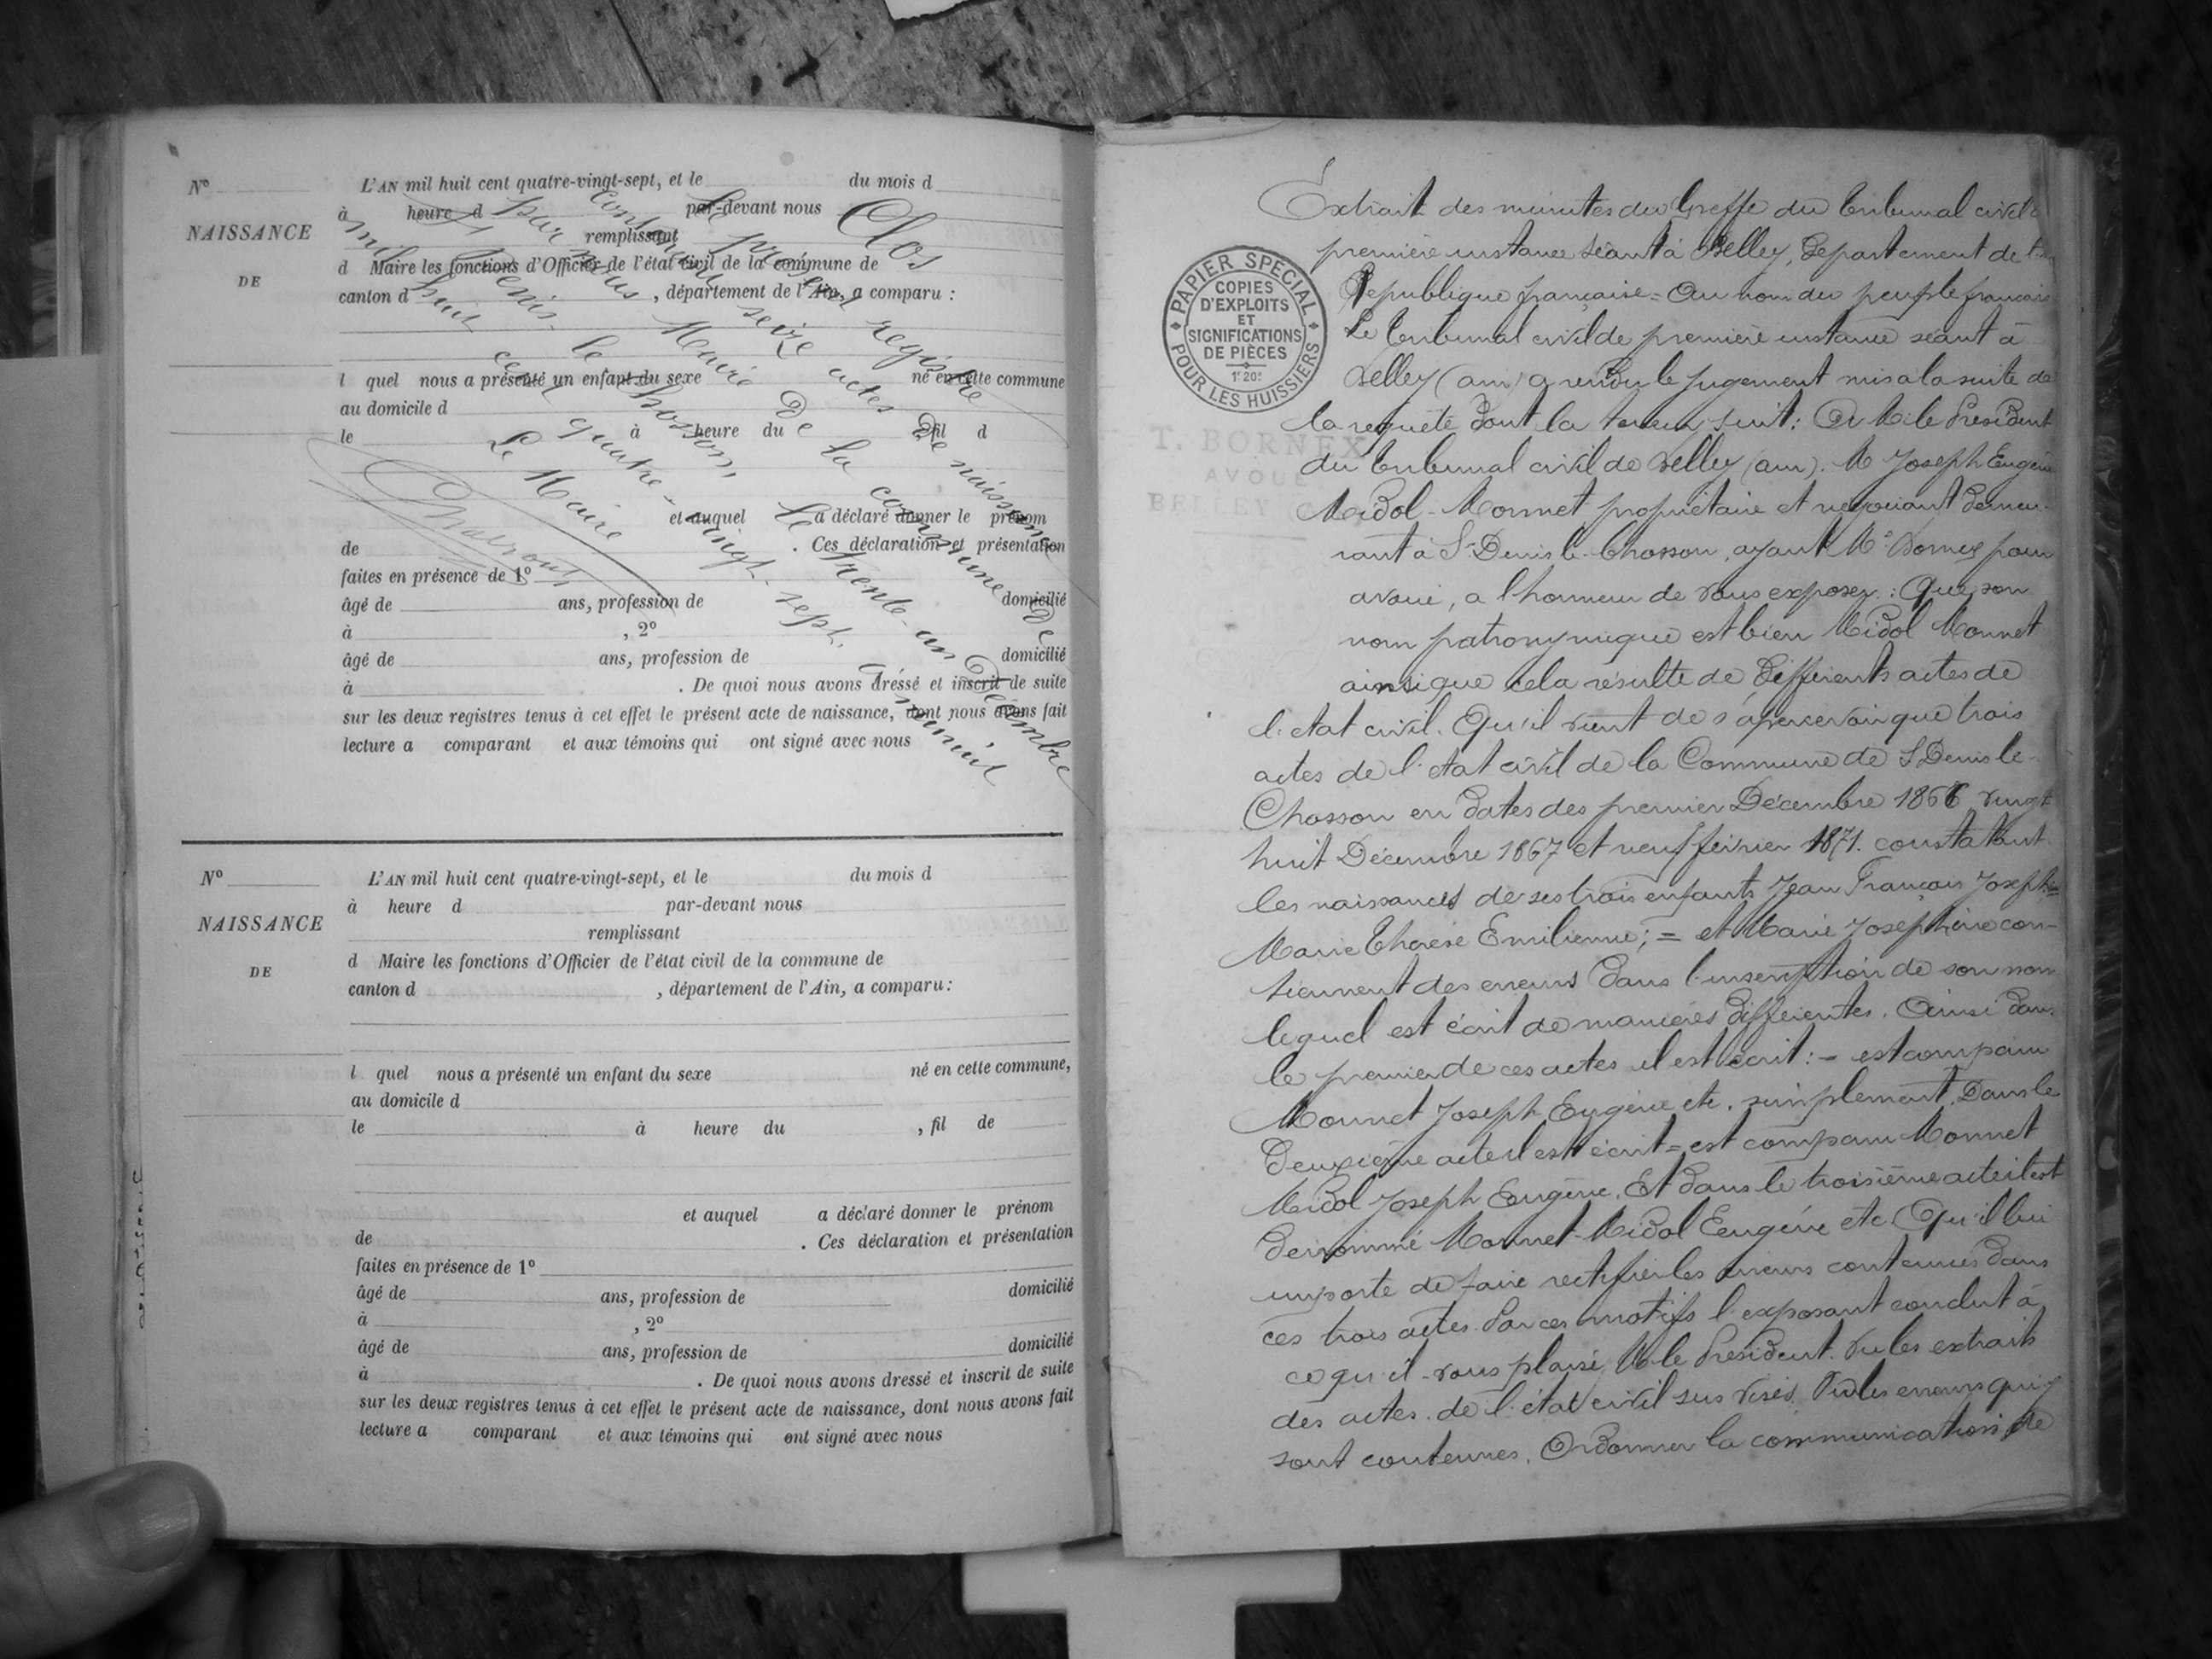 N°
NAISSANCE
DE
L'AN mil huit cent quatre-vingt-sept, et le du mois d
à heure d par-devant nous
remplissant
d Maire les fonctions d'Officier de l'état civil de la commune de
canton d , département de l'Ain, a comparu :
l quel nous a présenté un enfant du sexe né en cette commune
au domicile d
le à heure du fil d
et auquel a déclaré donner le prénom
de . Ces déclaration et présentation
faites en présence de 1°
âgé de ans, profession de domicilié
à , 2°
âgé de ans, profession de domicilié
à . De quoi nous avons dressé et inscrit de suite
sur les deux registres tenus à cet effet le présent acte de naissance, dont nous avons fait
lecture a comparant et aux témoins qui ont signé avec nous
Clos le présent registre
contenant seize actes de naissance
par nous Maire de la commune de
St Denis le Chosson, le trente-un Décembre
mil huit cent quatre-vingt-sept, à minuit
Le Maire
N°
NAISSANCE
DE
L'AN mil huit cent quatre-vingt-sept, et le du mois d
à heure d par-devant nous
remplissant
d Maire les fonctions d'Officier de l'état civil de la commune de
canton d , département de l'Ain, a comparu :
l quel nous a présenté un enfant du sexe né en cette commune,
au domicile d
le à heure du , fil de
et auquel a déclaré donner le prénom
de . Ces déclaration et présentation
faites en présence de 1°
âgé de ans, profession de domicilié
à , 2°
âgé de ans, profession de domicilié
à . De quoi nous avons dressé et inscrit de suite
sur les deux registres tenus à cet effet le présent acte de naissance, dont nous avons fait
lecture a comparant et aux témoins qui ont signé avec nous
PAPIER SPÉCIAL
COPIES
D'EXPLOITS
ET
SIGNIFICATIONS
DE PIÈCES
1f 20c
POUR LES HUISSIERS
T. BORNEX
AVOUÉ
BELLEY
Extrait des minutes du Greffe du Tribunal civil
première instance séant à Belley, Département de
République française = Au nom du peuple français
Le Tribunal civil de première instance séant à
Belley (ain) a rendu le jugement mis a la suite de
la requête dont la teneur suit : A M. le Président
du Tribunal civil de Belley (ain). M Joseph Eugène
Midol-Monnet propriétaire et négociant demeu-
rant à St Denis le Chosson, ayant Me Bornex pour
avoué, a l'honneur de vous exposer : Que son
nom patronymique est bien Midol Monnet
ainsi que cela résulte de différents actes de
l'état civil. Qu'il vient de s'apercevoir que trois
actes de l'état civil de la Commune de St Denis le
Chosson en dates des premier Décembre 1866 vingt
huit Décembre 1867 et neuf février 1871. constatant
les naissances de ses trois enfants Jean François Joseph =
Marie Thérèse Emilienne ; = et Marie Joséphine con-
tiennent des erreurs dans l'inscription de son nom
lequel est écrit de manières différentes. Ainsi dans
le premier de ces actes il est écrit : = est comparu
Monnet Joseph Eugène etc. simplement. Dans le
deuxième acte il est écrit = est comparu Monnet
Midol Joseph Eugène. Et dans le troisième acte il est
dénommé Monnet-Midol Eugène etc. Qu'il lui
importe de faire rectifier les erreurs contenues dans
ces trois actes. Par ces motifs l'exposant conclut à
ce qu'il vous plaise, M. le Président. Vu les extraits
des actes de l'état civil sus visés. Vu les erreurs qui y
sont contenues. Ordonner la communication de